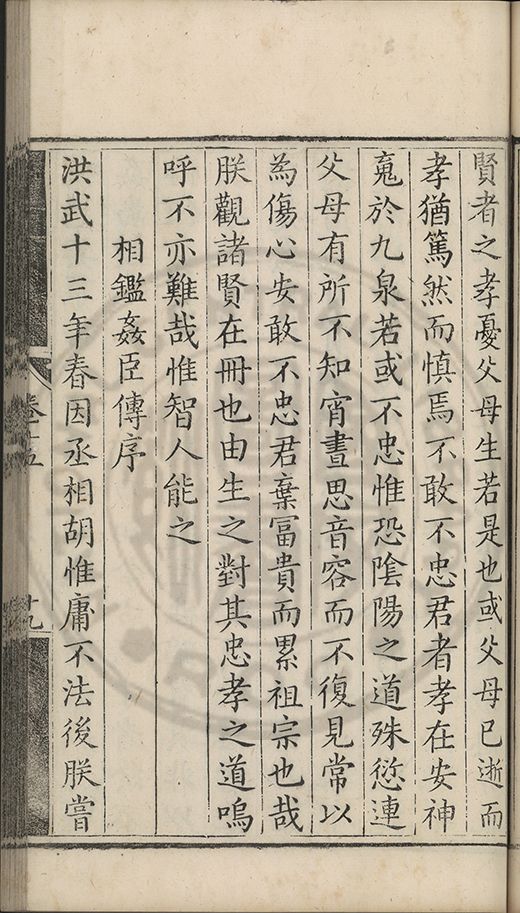 賢者之孝憂父母生若是也或父母已逝而
孝猶篤然而慎焉不敢不忠君者孝在安神
䰟於九泉若或不忠惟恐陰陽之道殊愆連
父母有所不知宵晝思音容而不復見常以
為傷心安敢不忠君棄冨貴而累祖宗也哉
朕觀諸賢在冊也由生之對其忠孝之道嗚
呼不亦難哉惟智人能之
相鑑姦臣傳序
洪武十三年春因丞相胡惟庸不法後朕嘗
卷十五
十九